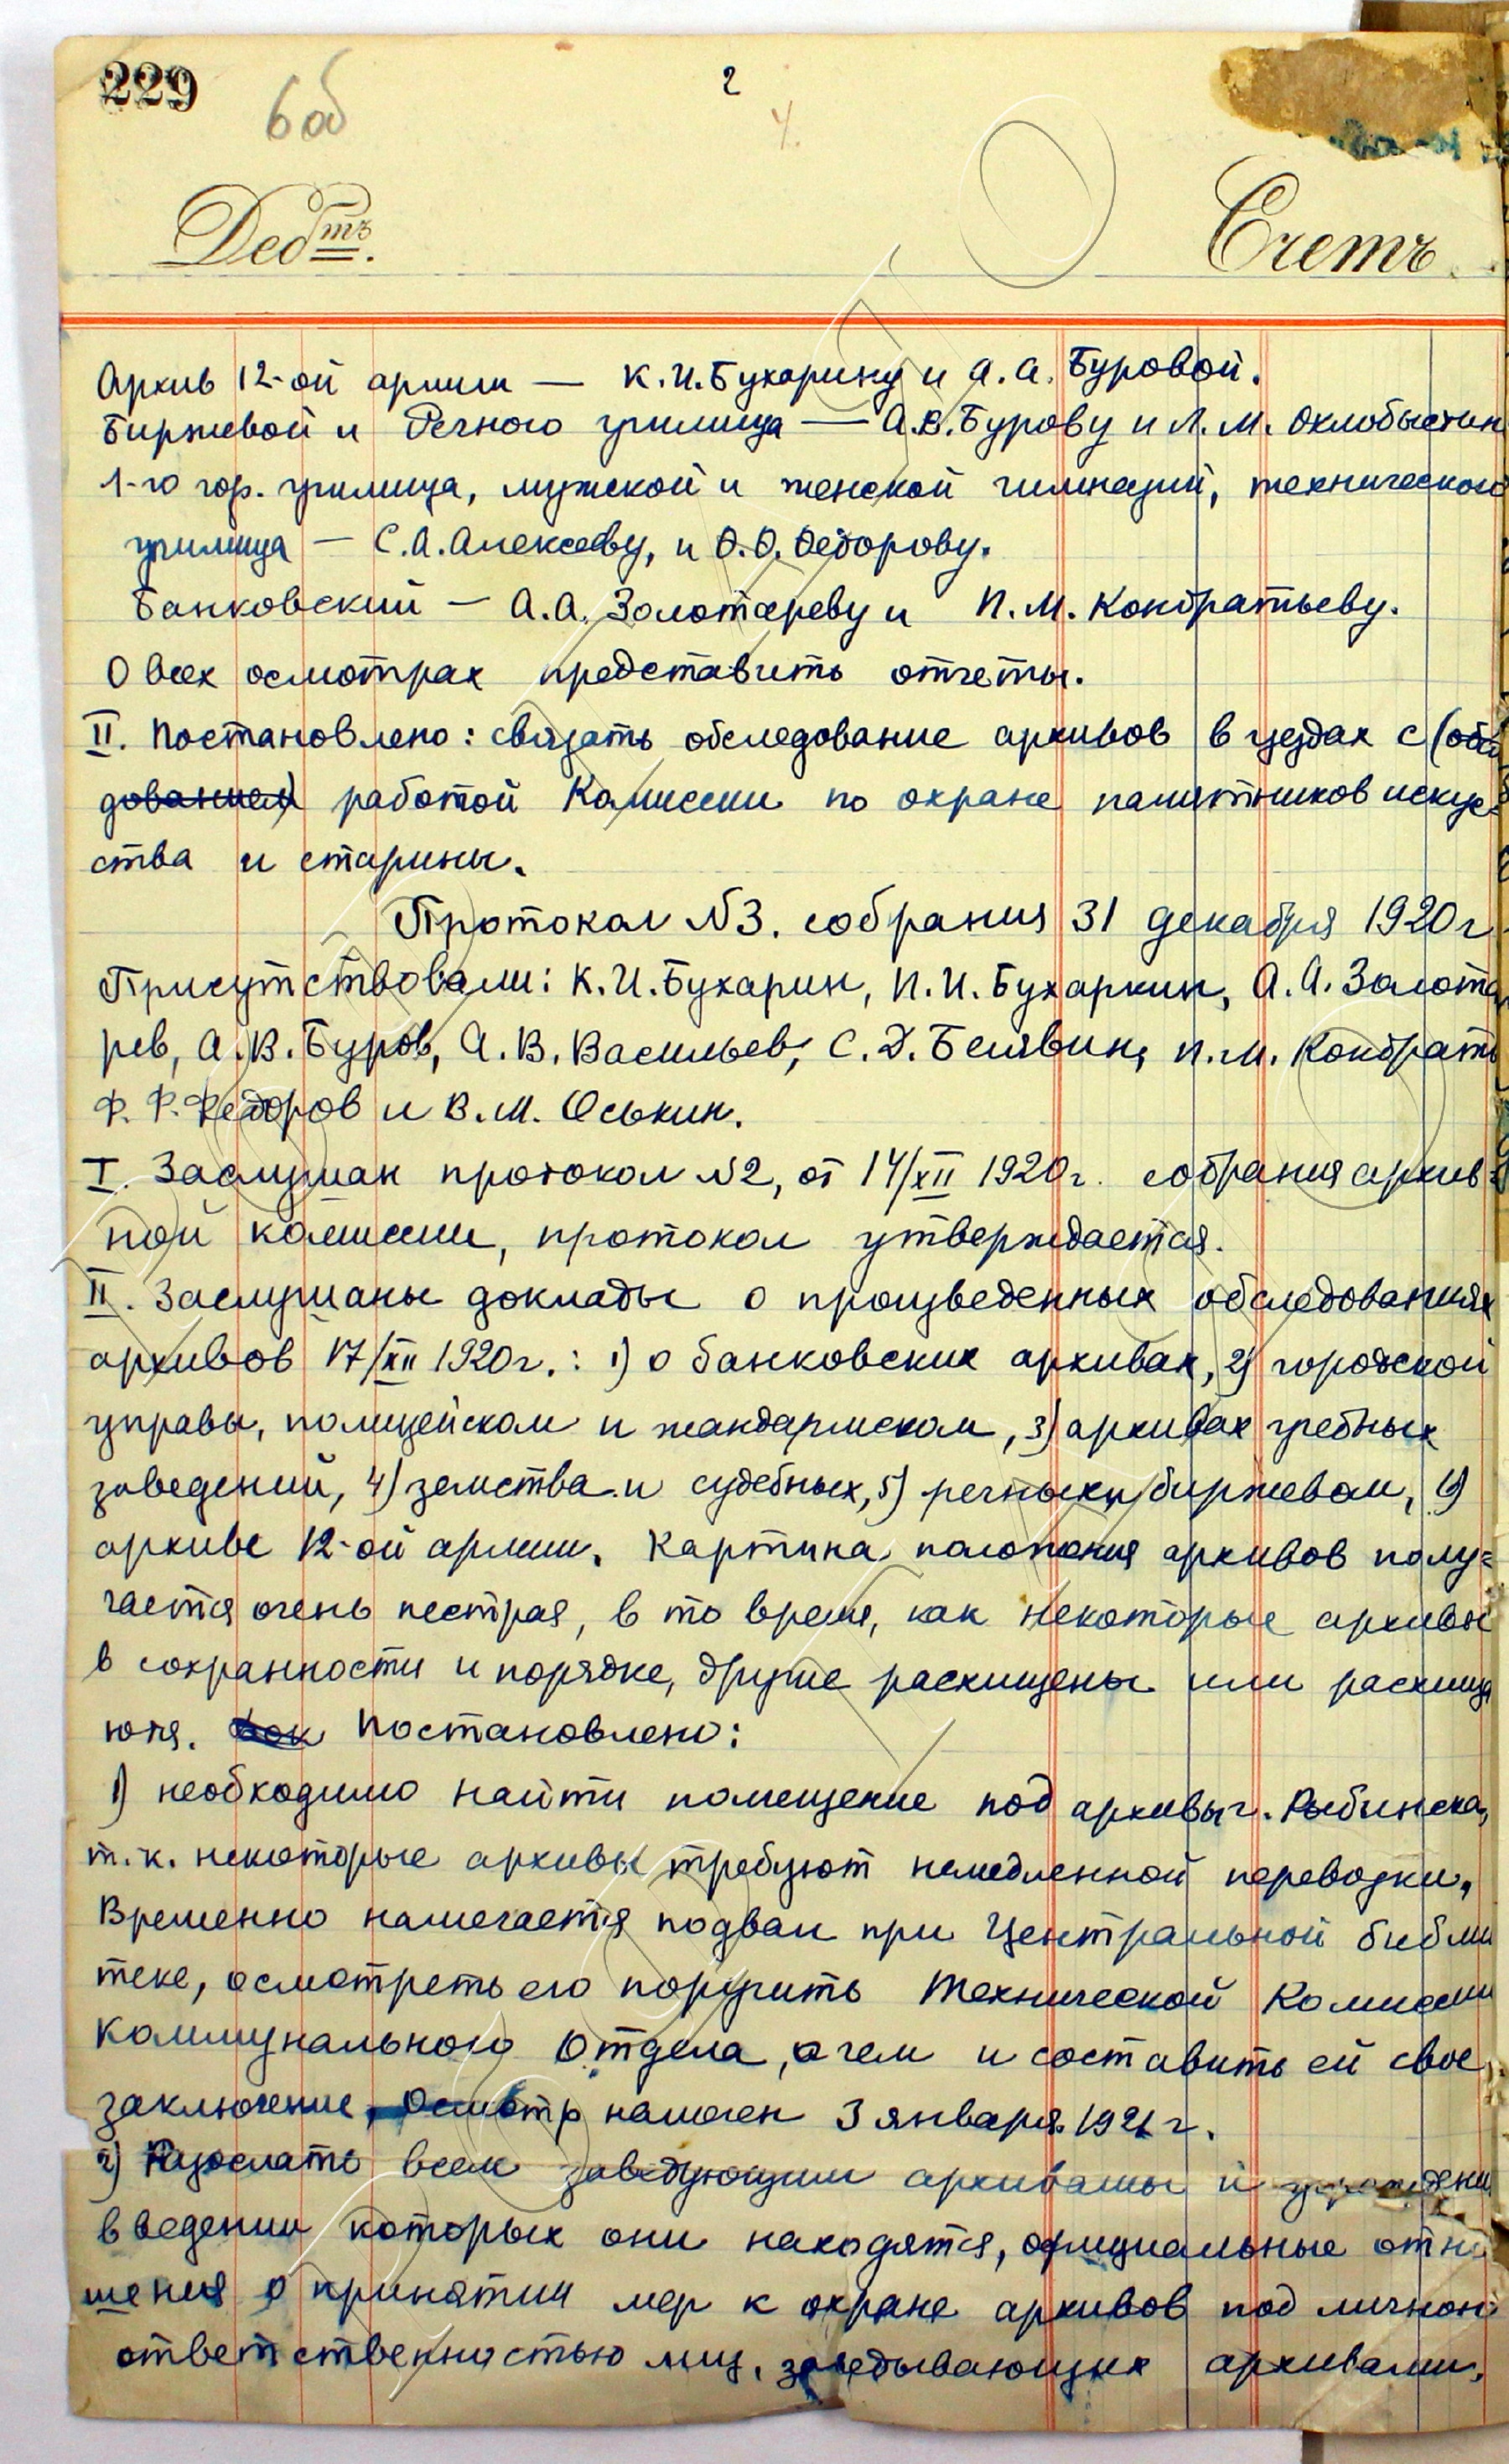 229
6 об
2
4.
Дебтъ.
Счетъ
Архив 12-ой армии — К.И.Бухарину и А.А. Буровой.
Биржевой и Речного училища — А.В.Бурову и Л.М. Оклобыстин
1-го гор. училища, мужской и женской гимназий, технического
училища — С.А.Алексееву, и Ф.Ф.Федорову.
Банковский — А.А. Золотареву и П.М. Кондратьеву.
О всех осмотрах представить отчеты.
II. Постановлено: связать обследование архивов в уездах с (обсле
дованием) работой Комиссии по охране памятников искус-
ства и старины.
Протокол №3. собрания 31 декабря 1920г
Присутствовали: К.И.Бухарин, П.И.Бухаркин, А.А.Золота
рев, А.В.Буров, А.В.Васильев, С.Д.Белявин, П.М. Кондрать
Ф.Ф.Федоров и В.М. Оськин.
I. Заслушан протокол №2, от 14/XII 1920г. собрания архив-
ной комиссии, протокол утверждается.
II. Заслушаны доклады о произведенных обследованиях
архивов 17/XII 1920г.: 1) о банковских архивах, 2) городской
управы, полицейском и жандармском, 3) архивах учебных
заведений, 4) земства и судебных, 5) речных и биржевом, 6)
архиве 12-ой армии. Картина положения архивов полу=
чается очень пестрая, в то время, как некоторые архивы
в сохранности и порядке, другие расхищены или расхища
ются. Постановлено:
1) необходимо найти помещение под архивы г. Рыбинска,
т.к. некоторые архивы требуют немедленной перевозки,
Временно намечается подвал при Центральной библи
теке, осмотреть его поручить Технической Комиссии
Коммунального Отдела, о чем и составить ей свое
заключение, Осмотр намечен 3 января 1921г.
2) Разослать всем заведующим архивами и учреждени
в ведении которых они находятся, официальные отно
шения о принятии мер к охране архивов под личной
ответственностью лиц, заведывающих архивами,